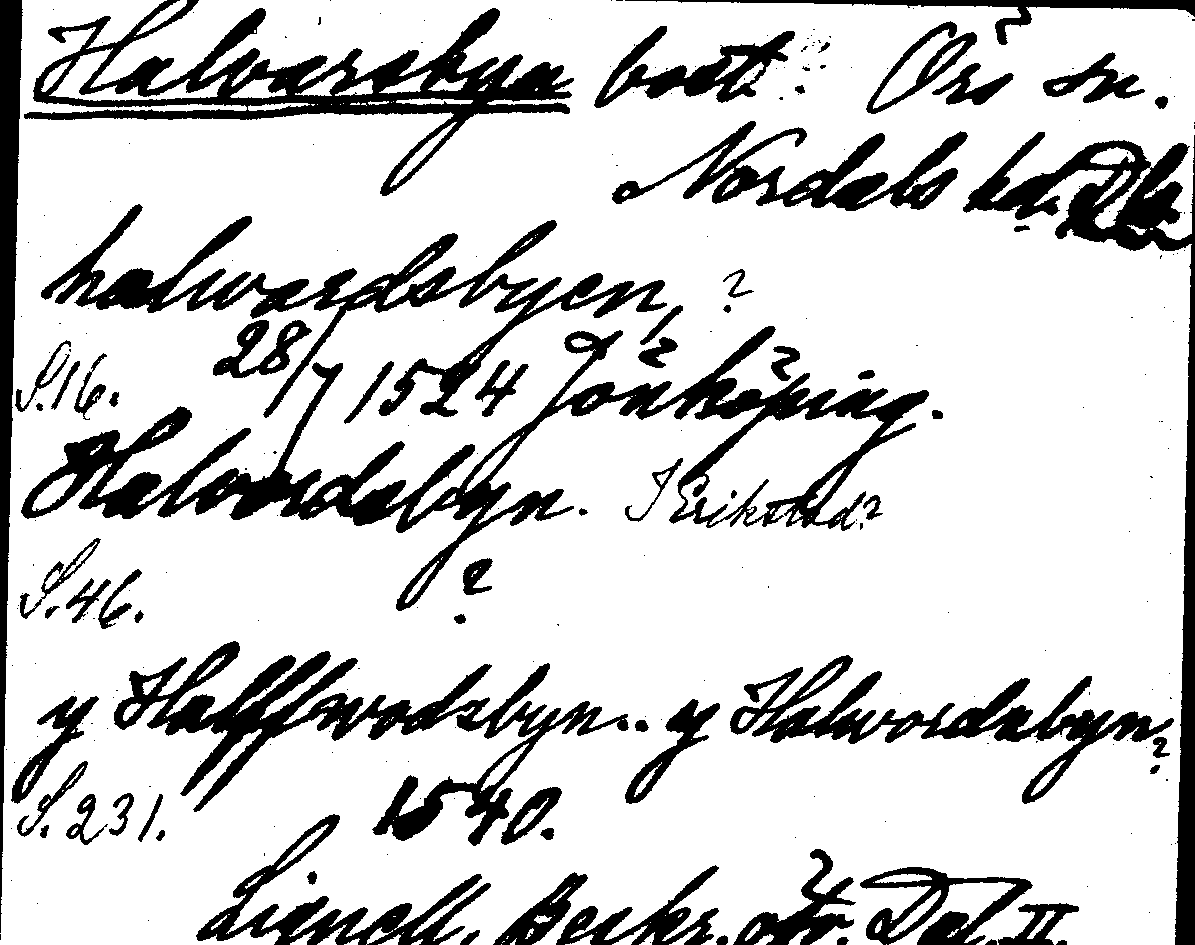 Halvarsbyn bost. Örs sn.
Nordals hd. Dls
halwardsbyen, ?
S.16. 28/7 1524 Jönköping.
Halvordsbyn. I Erikstad?
S.46. ?
y Halffwodzbyn.. y Halwordzbyn ?
S.231. 1540.
Lignell, Beskr. öfv. Dal. II.